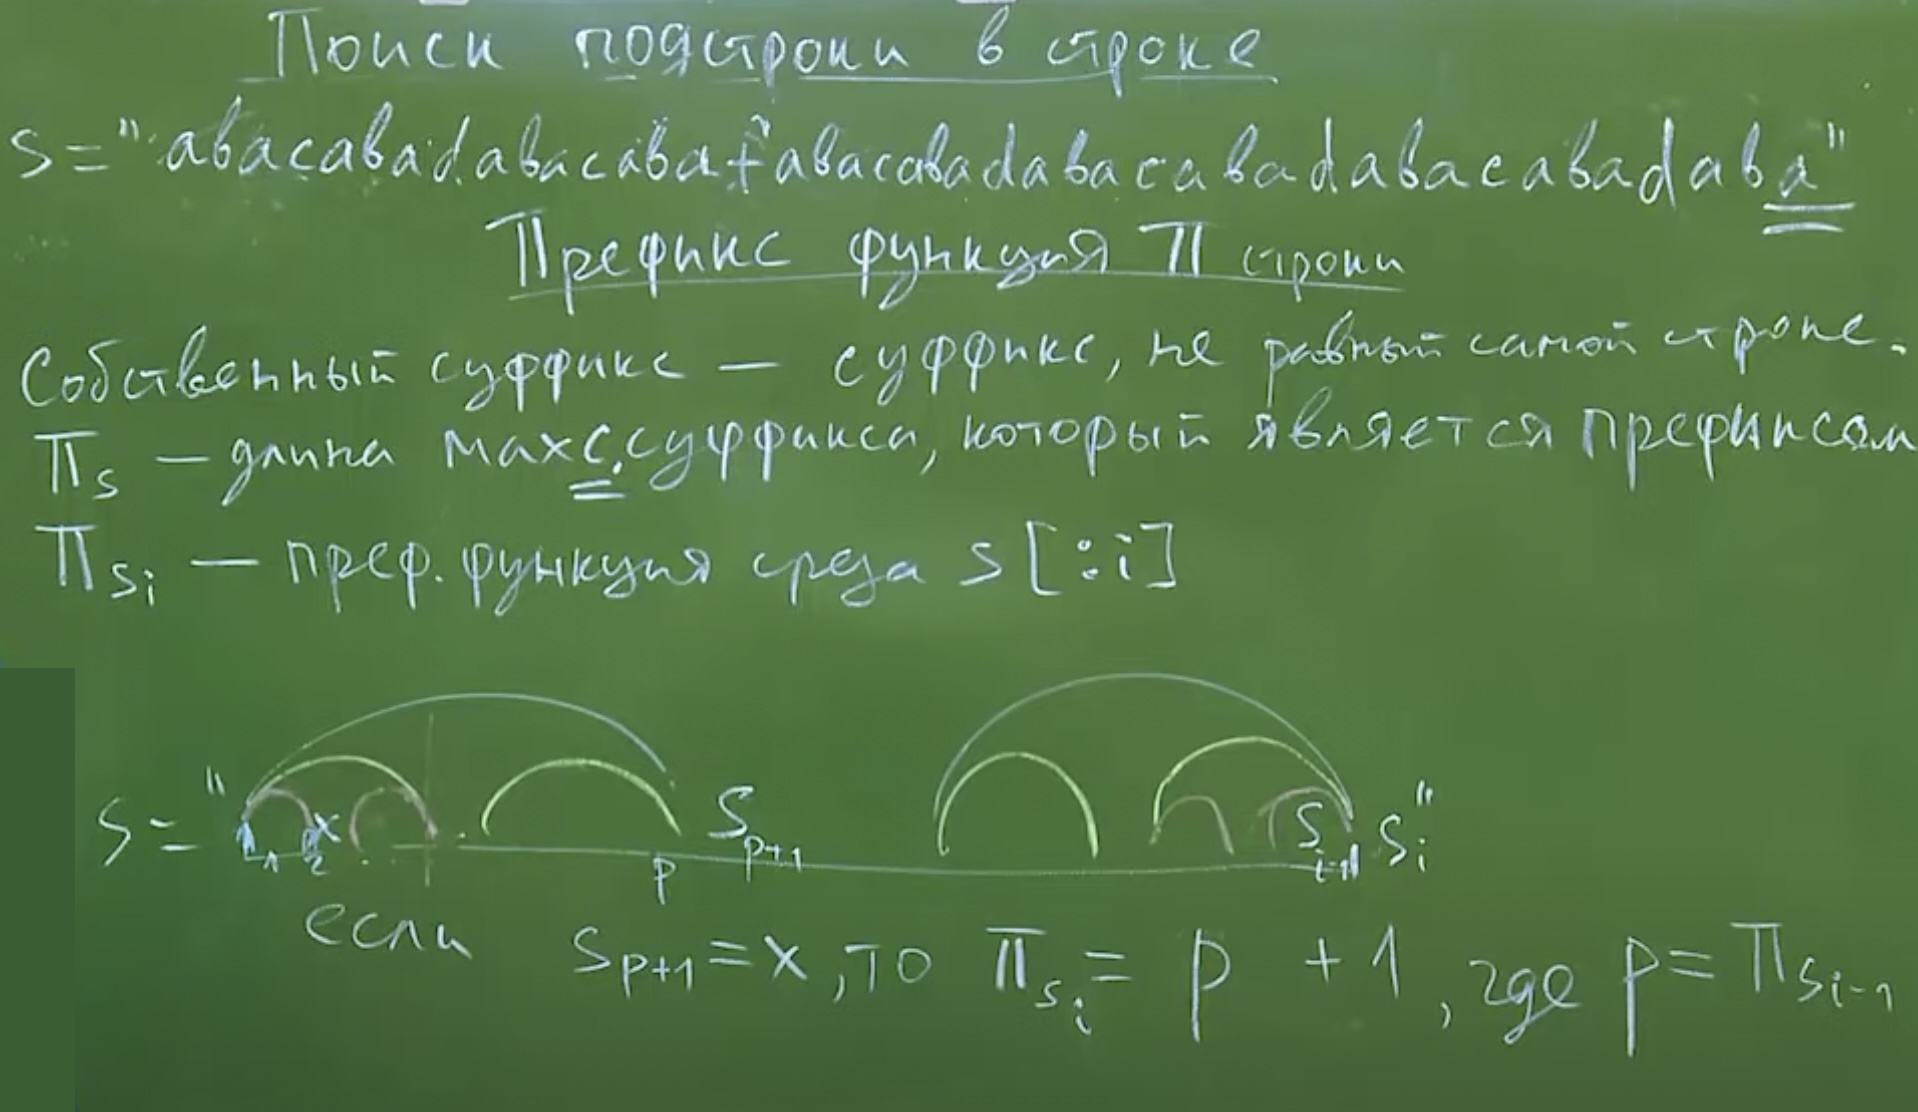 Поиск подстроки в строке
S = "abacabadabacabafabacabadabacabadabacabadaba"
Префикс функция П строки
Собственный суффикс — суффикс, не равный самой строке.
П_S — длина max с. суффикса, который является префиксом
П_Si — преф. функция среза S[:i]
S = " 1 2 x p S_p+1 S_i-1 S_i "
если S_p+1 = x, то П_Si = p + 1, где p = П_Si-1